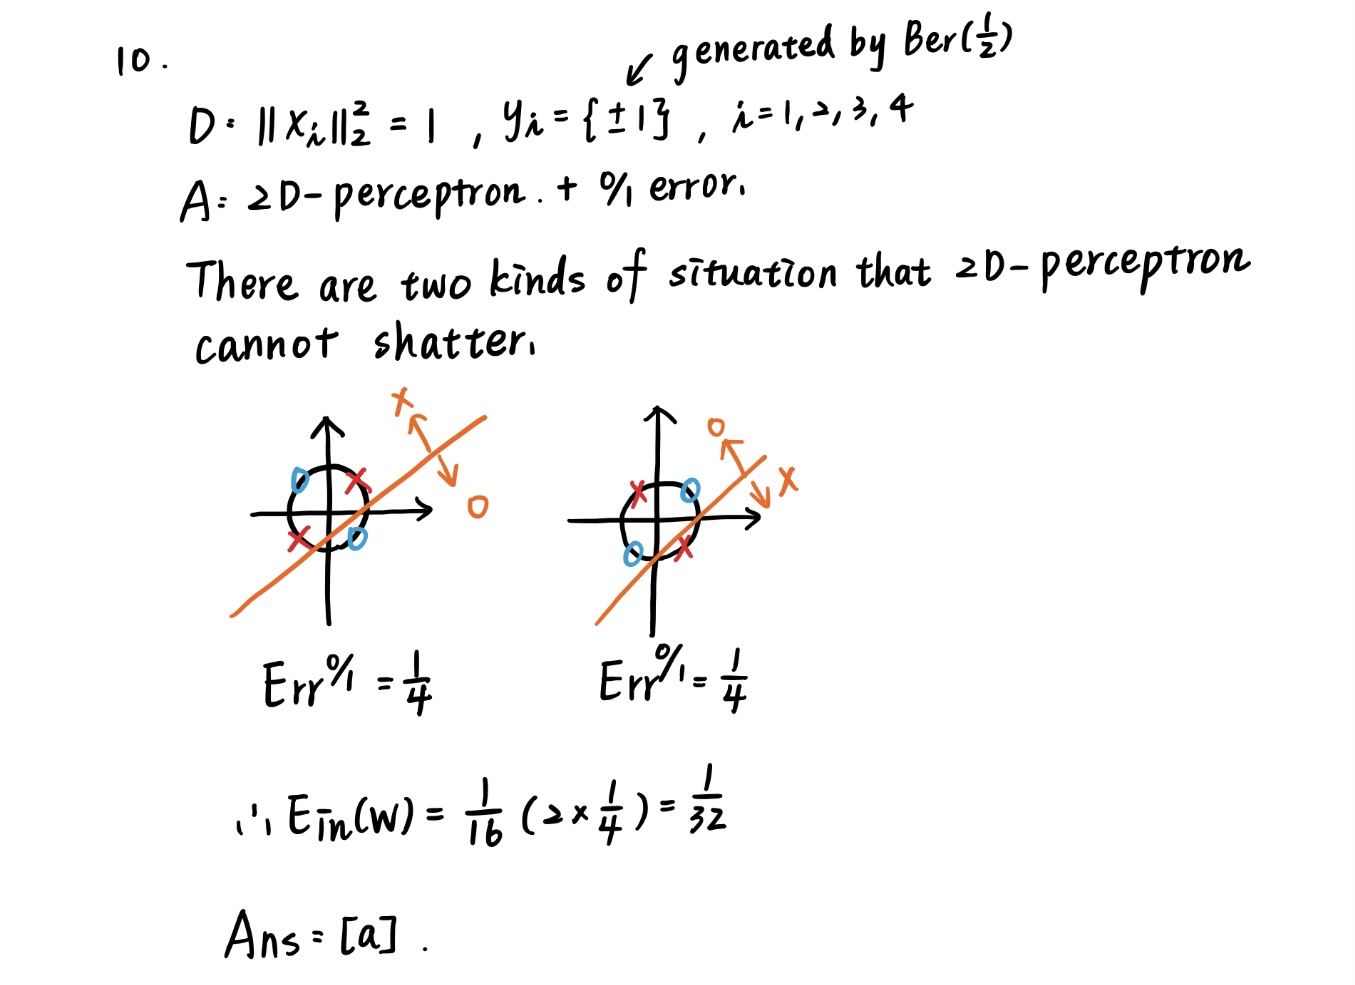 10.
↙ generated by Ber(½)
D: ||x_i||₂² = 1 , y_i = {±1} , i = 1, 2, 3, 4
A: 2D-perceptron. + 0/1 error.
There are two kinds of situation that 2D-perceptron
cannot shatter.
x o
o x
x o
x o
o x
o x
Err^0/1 = 1/4 Err^0/1 = 1/4
∴ E_in(w) = 1/16 (2 × 1/4) = 1/32
Ans = [a] .